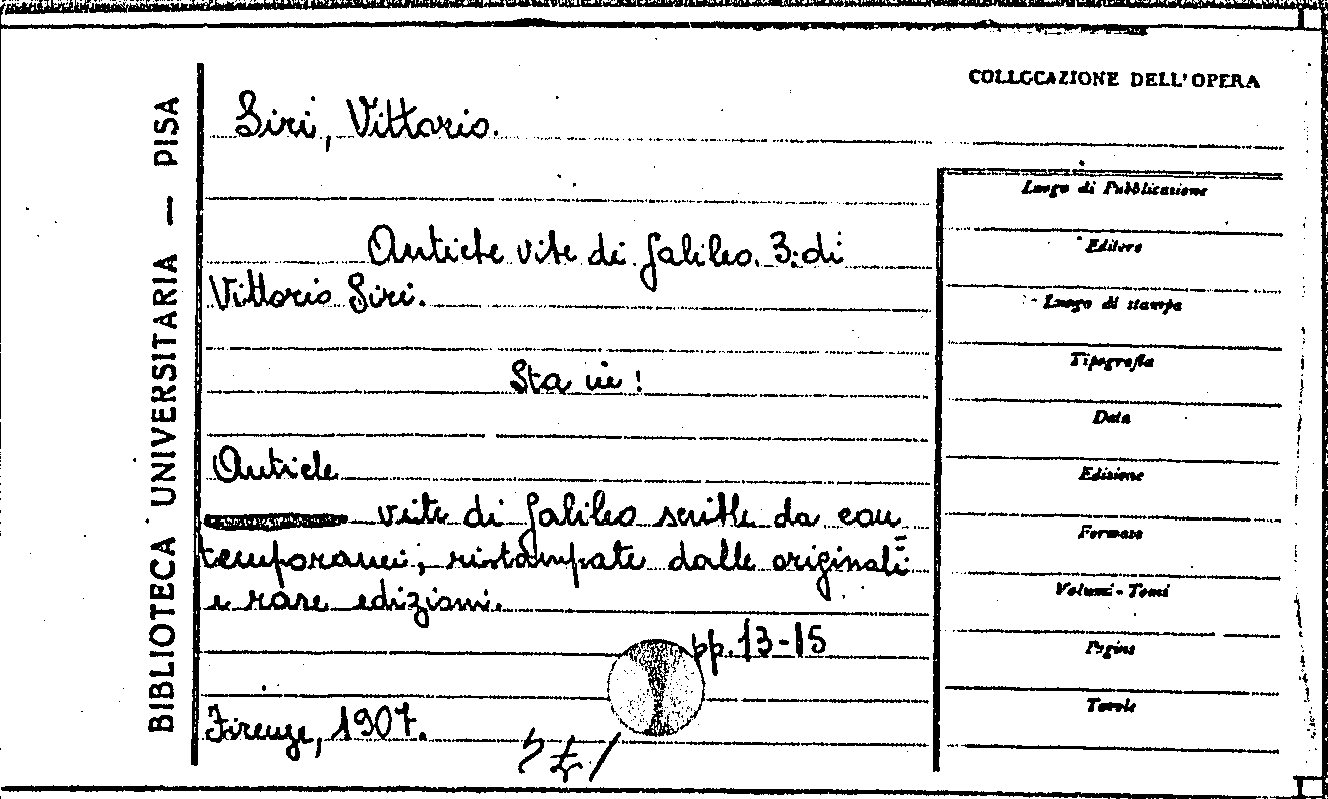 BIBLIOTECA UNIVERSITARIA — PISA
COLLOCAZIONE DELL'OPERA
Siri, Vittorio.
Antiche vite di Galileo. 3: di
Vittorio Siri.
Sta in!
Antiche
vite di Galileo scritte da con=
temporanei, ristampate dalle originali
e rare edizioni.
pp. 13-15
Firenze, 1907.
Luogo di Pubblicazione
Editore
Luogo di stampa
Tipografia
Data
Edizione
Formato
Volumi - Tomi
Pagine
Tavole